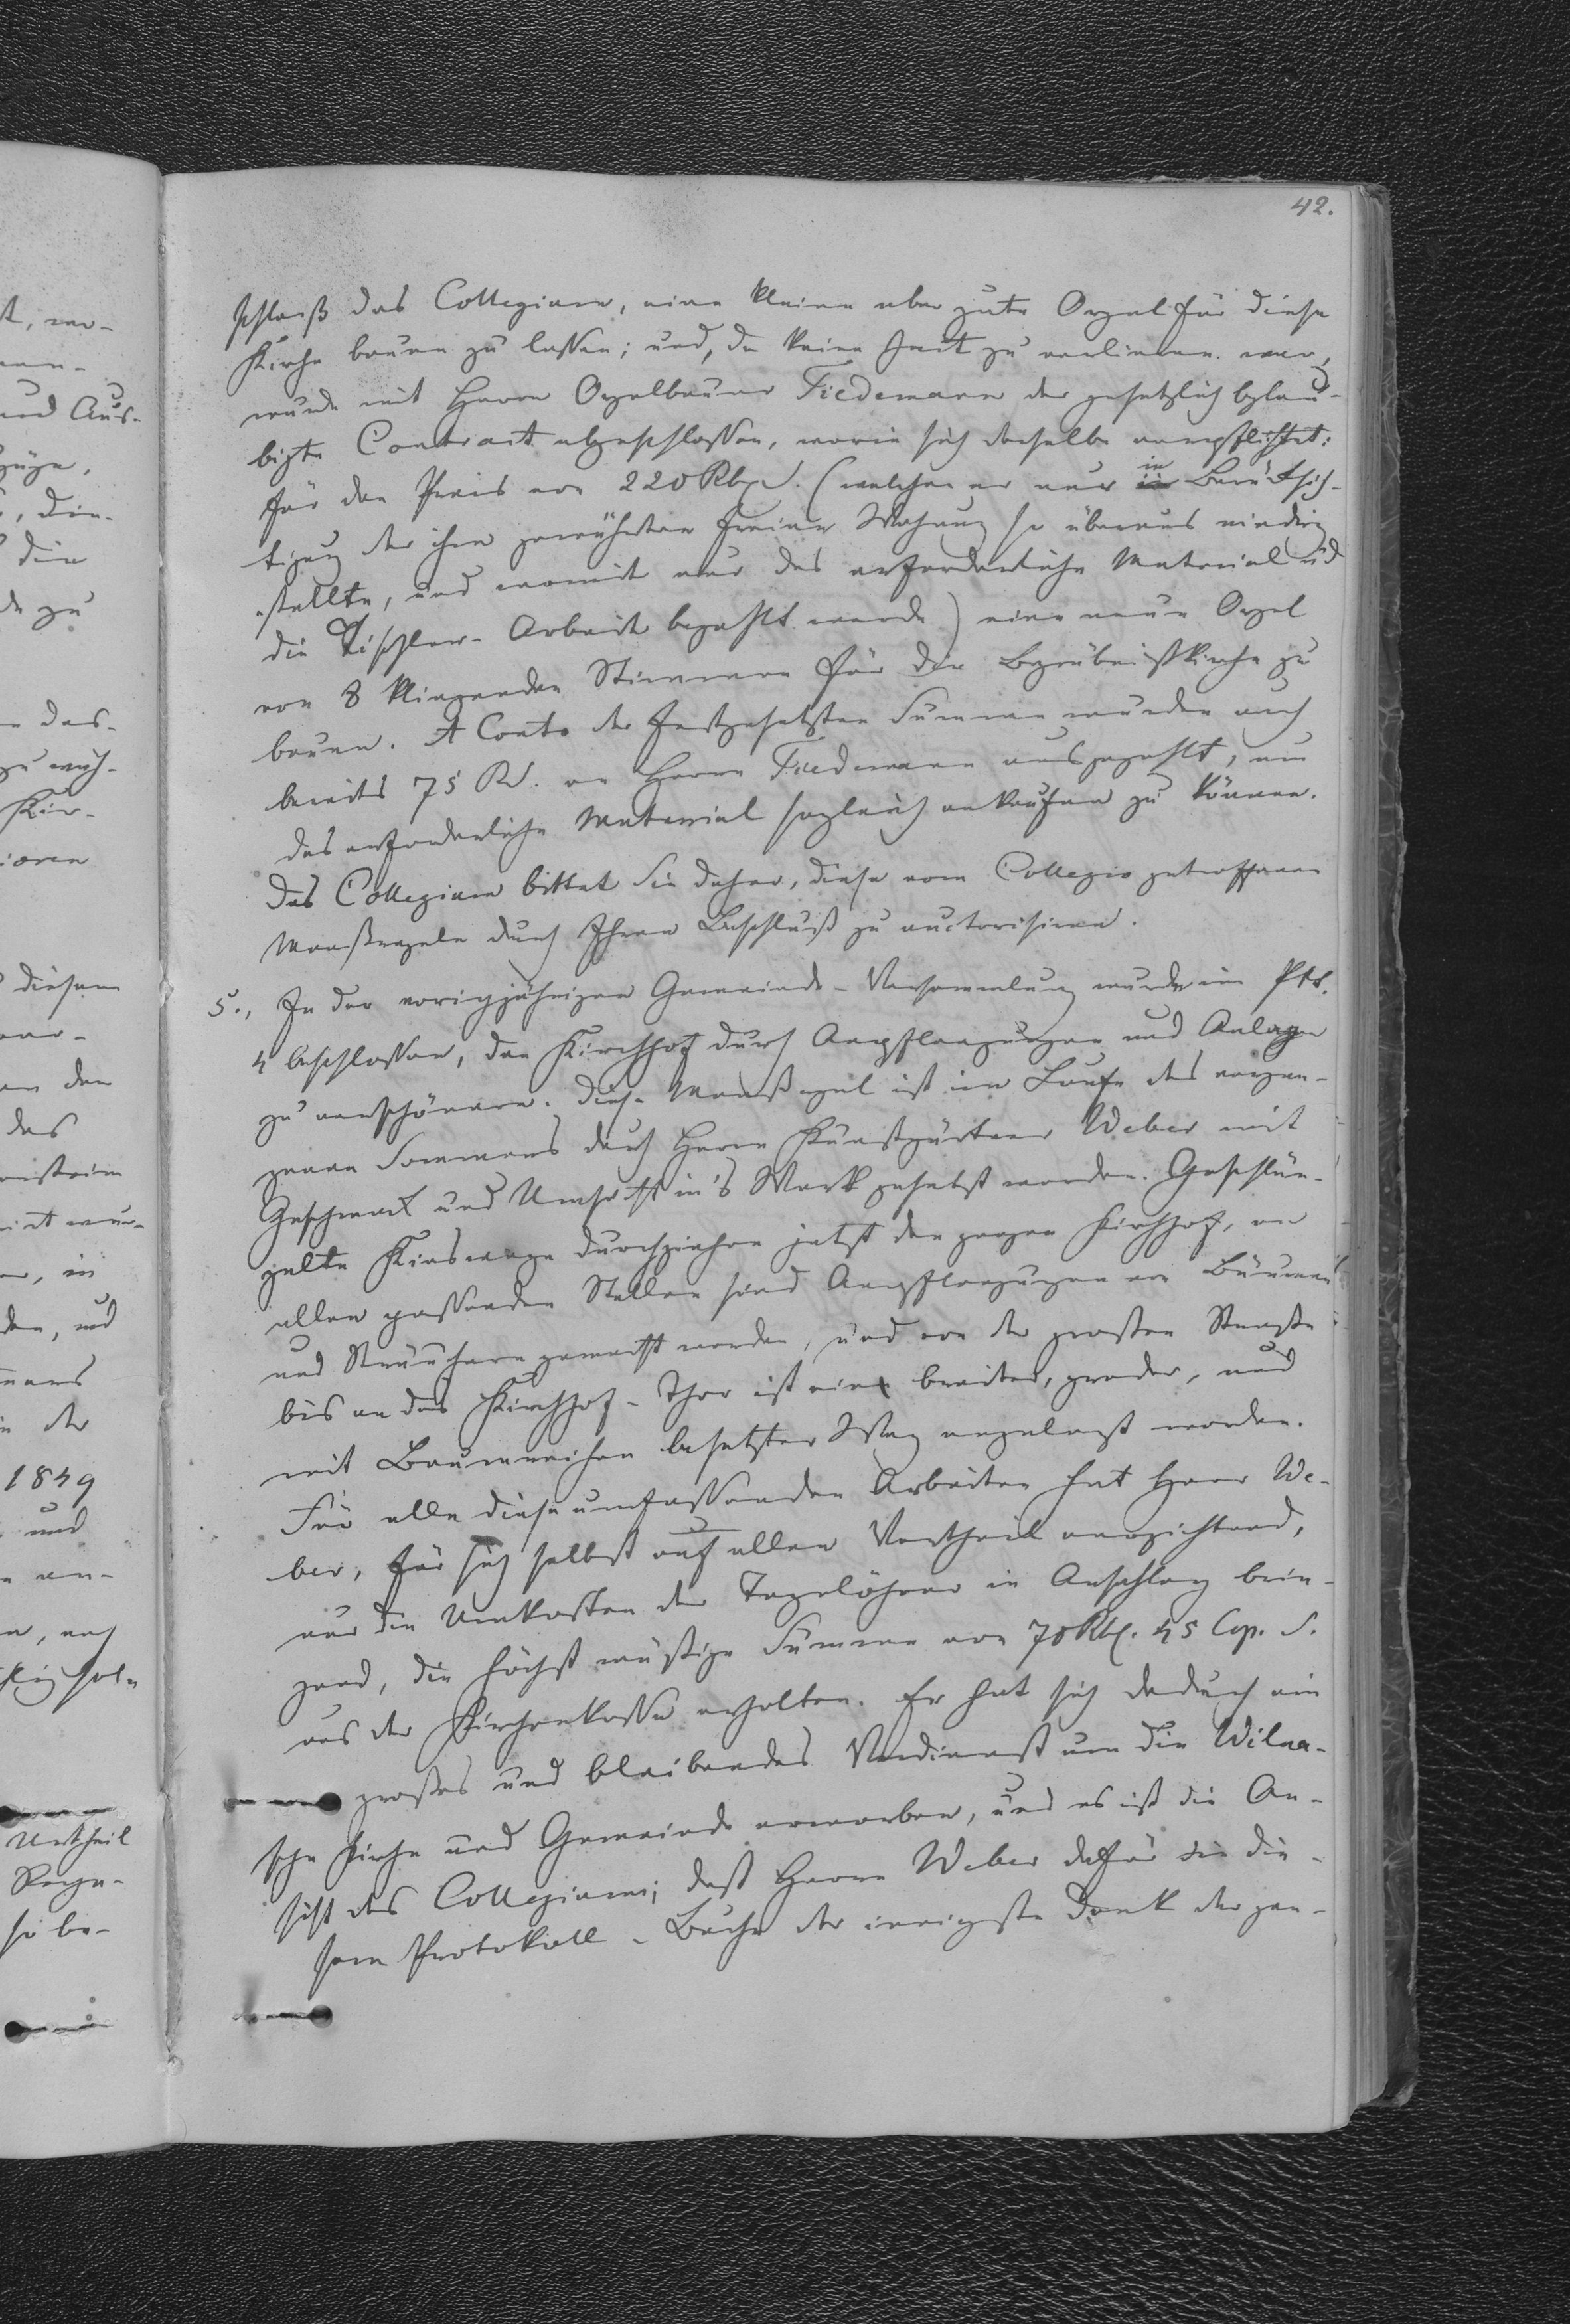 42.
schloß das Collegium, eine kleine aber gute Orgel für diese
Kirche bauen zu lassen; und, da keine Zeit zu verlieren war,
wurde mit Herrn Orgelbauer Tiedemann der gesetzlich beglau-
bigte Contract abgeschlossen, worin sich derselbe verpflichtet:
für den Preis von 220 Rbl. S. (welchen er nur in Berücksich-
tigung der ihm gewährten freien Wohnung so überaus niedrig
stellte, und womit nur das erforderliche Material und
die Tischler-Arbeit bezahlt werde) eine neue Orgel
von 8 klingenden Stimmen für die Begräbnißkirche zu
bauen. A Conto der festgesetzten Summe wurden auch
bereits 75 R. S. an Herrn Tiedemann ausgezahlt, um
das erforderliche Material sogleich ankaufen zu können.
Das Collegium bittet Sie daher, diese vom Collegio getroffenen
Maaßregeln durch Ihren Beschluß zu auctorisiren.
5., In der vorigjährigen Gemeinde-Versammlung wurde im Pkt.
4 beschlossen, den Kirchhof durch Anpflanzungen und Anlagen
zu verschönern. Diese Maaßregel ist im Laufe des vergan-
genen Sommers durch Herrn Kunstgärtner Weber mit
Geschmack und Umsicht in's Werk gesetzt worden. Geschlän-
gelte Kieswege durchziehen jetzt den ganzen Kirchhof, an
allen passenden Stellen sind Anpflanzungen von Bäumen
und Sträuchern gemacht worden, und von der großen Straße
bis an das Kirchhof-Thor ist ein breiter, grader, und
mit Baumreihen besetzter Weg angelegt worden.
Für alle diese umfassenden Arbeiten hat Herr We-
ber, für sich selbst auf allen Vortheil verzichtend,
nur die Unkosten der Tagelöhner in Anschlag brin-
gend, die höchst mäßige Summe von 70 Rbl. 45 Cop. S.
aus der Kirchenkasse erhalten. Er hat sich dadurch ein
großes und bleibendes Verdienst um die Wilna-
sche Kirche und Gemeinde erworben, und es ist die An-
sicht des Collegiums, daß Herrn Weber dafür in die-
sem Protokoll-Buche der innigste Dank der gan-